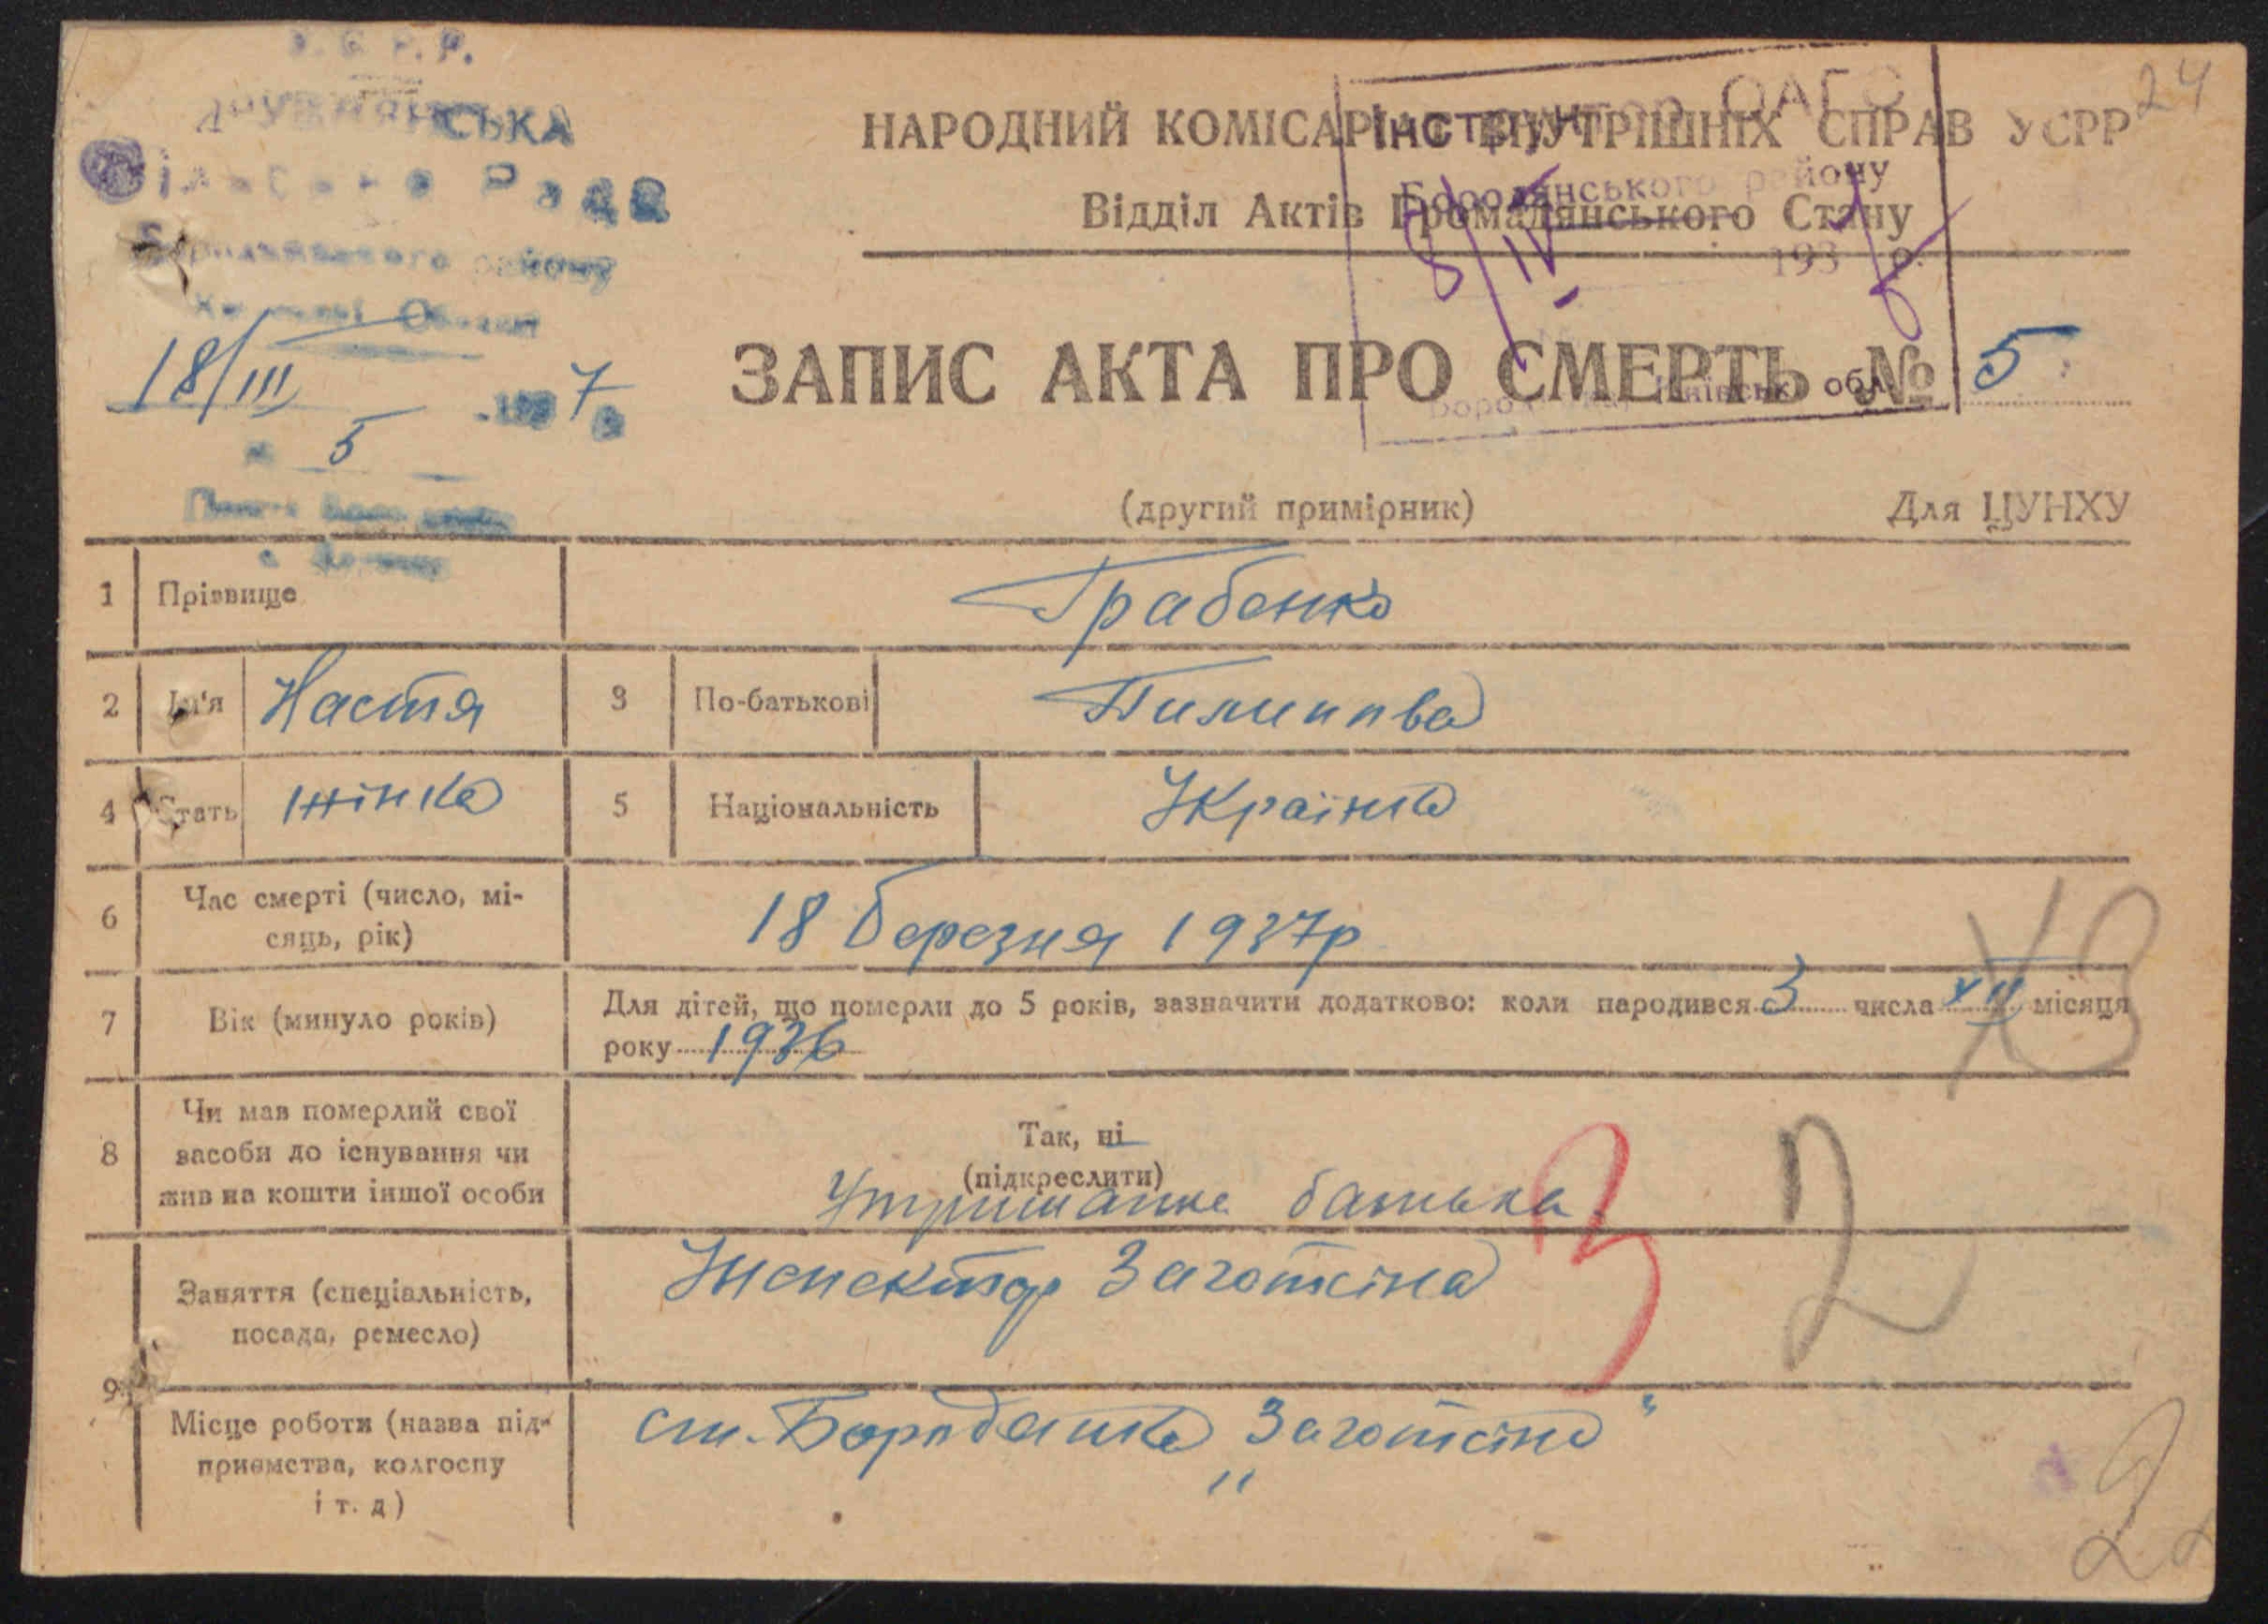 У.С.Р.Р.
ДРУЖНЯНСЬКА
Сільська Рада
Бородянського району
Київської Області
18/III 1937 р
№ 5
24
НАРОДНИЙ КОМІСАРІАТ ВНУТРІШНІХ СПРАВ УСРР
Відділ Актів Громадянського Стану
Інструктор ОАГС
Бородянського району
8/IV 1937 р.
Бородянка, Київськ. обл.
ЗАПИС АКТА ПРО СМЕРТЬ № 5
(другий примірник) Для ЦУНХУ
1 Прізвище Грабенко
2 Ім'я Настя 3 По-батькові Пилиппва
4 Стать жінка 5 Національність Українка
6 Час смерті (число, мі-
сяць, рік) 18 березня 1937р
7 Вік (минуло років) Для дітей, що померли до 5 років, зазначити додатково: коли народився 3 числа XII місяця
року 1936
8 Чи мав померлий свої
засоби до існування чи
жив на кошти іншої особи
Так, ні
(підкреслити)
Утриманка батька
3 2
9 Заняття (спеціальність,
посада, ремесло) Інспектор Заготсіна
Місце роботи (назва під-
приємства, колгоспу
і т. д) ст. Бородянка „Заготсіно"